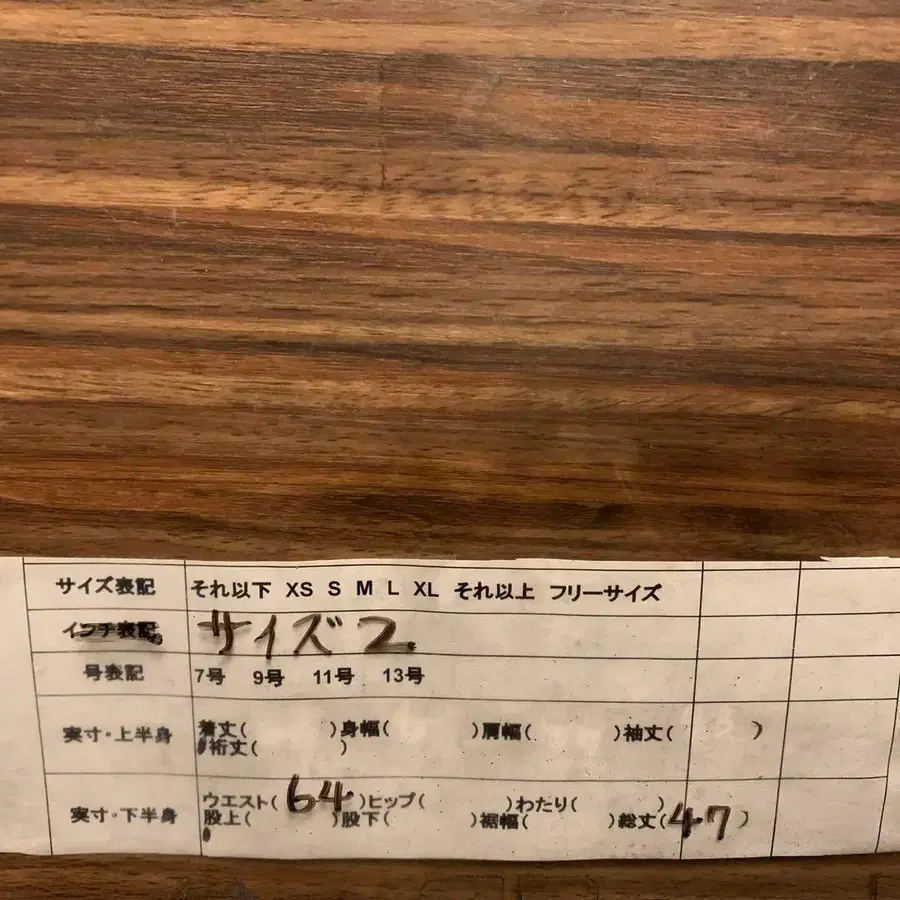 サイズ表記 それ以下 XS S M L XL それ以上 フリーサイズ
インチ表記 サイズ2.
号表記 7号 9号 11号 13号
実寸・上半身 着丈( )身幅( )肩幅( )袖丈( )
裄丈( )
実寸・下半身 ウエスト(64)ヒップ( )わたり( )
股上( )股下( )裾幅( )総丈(47)